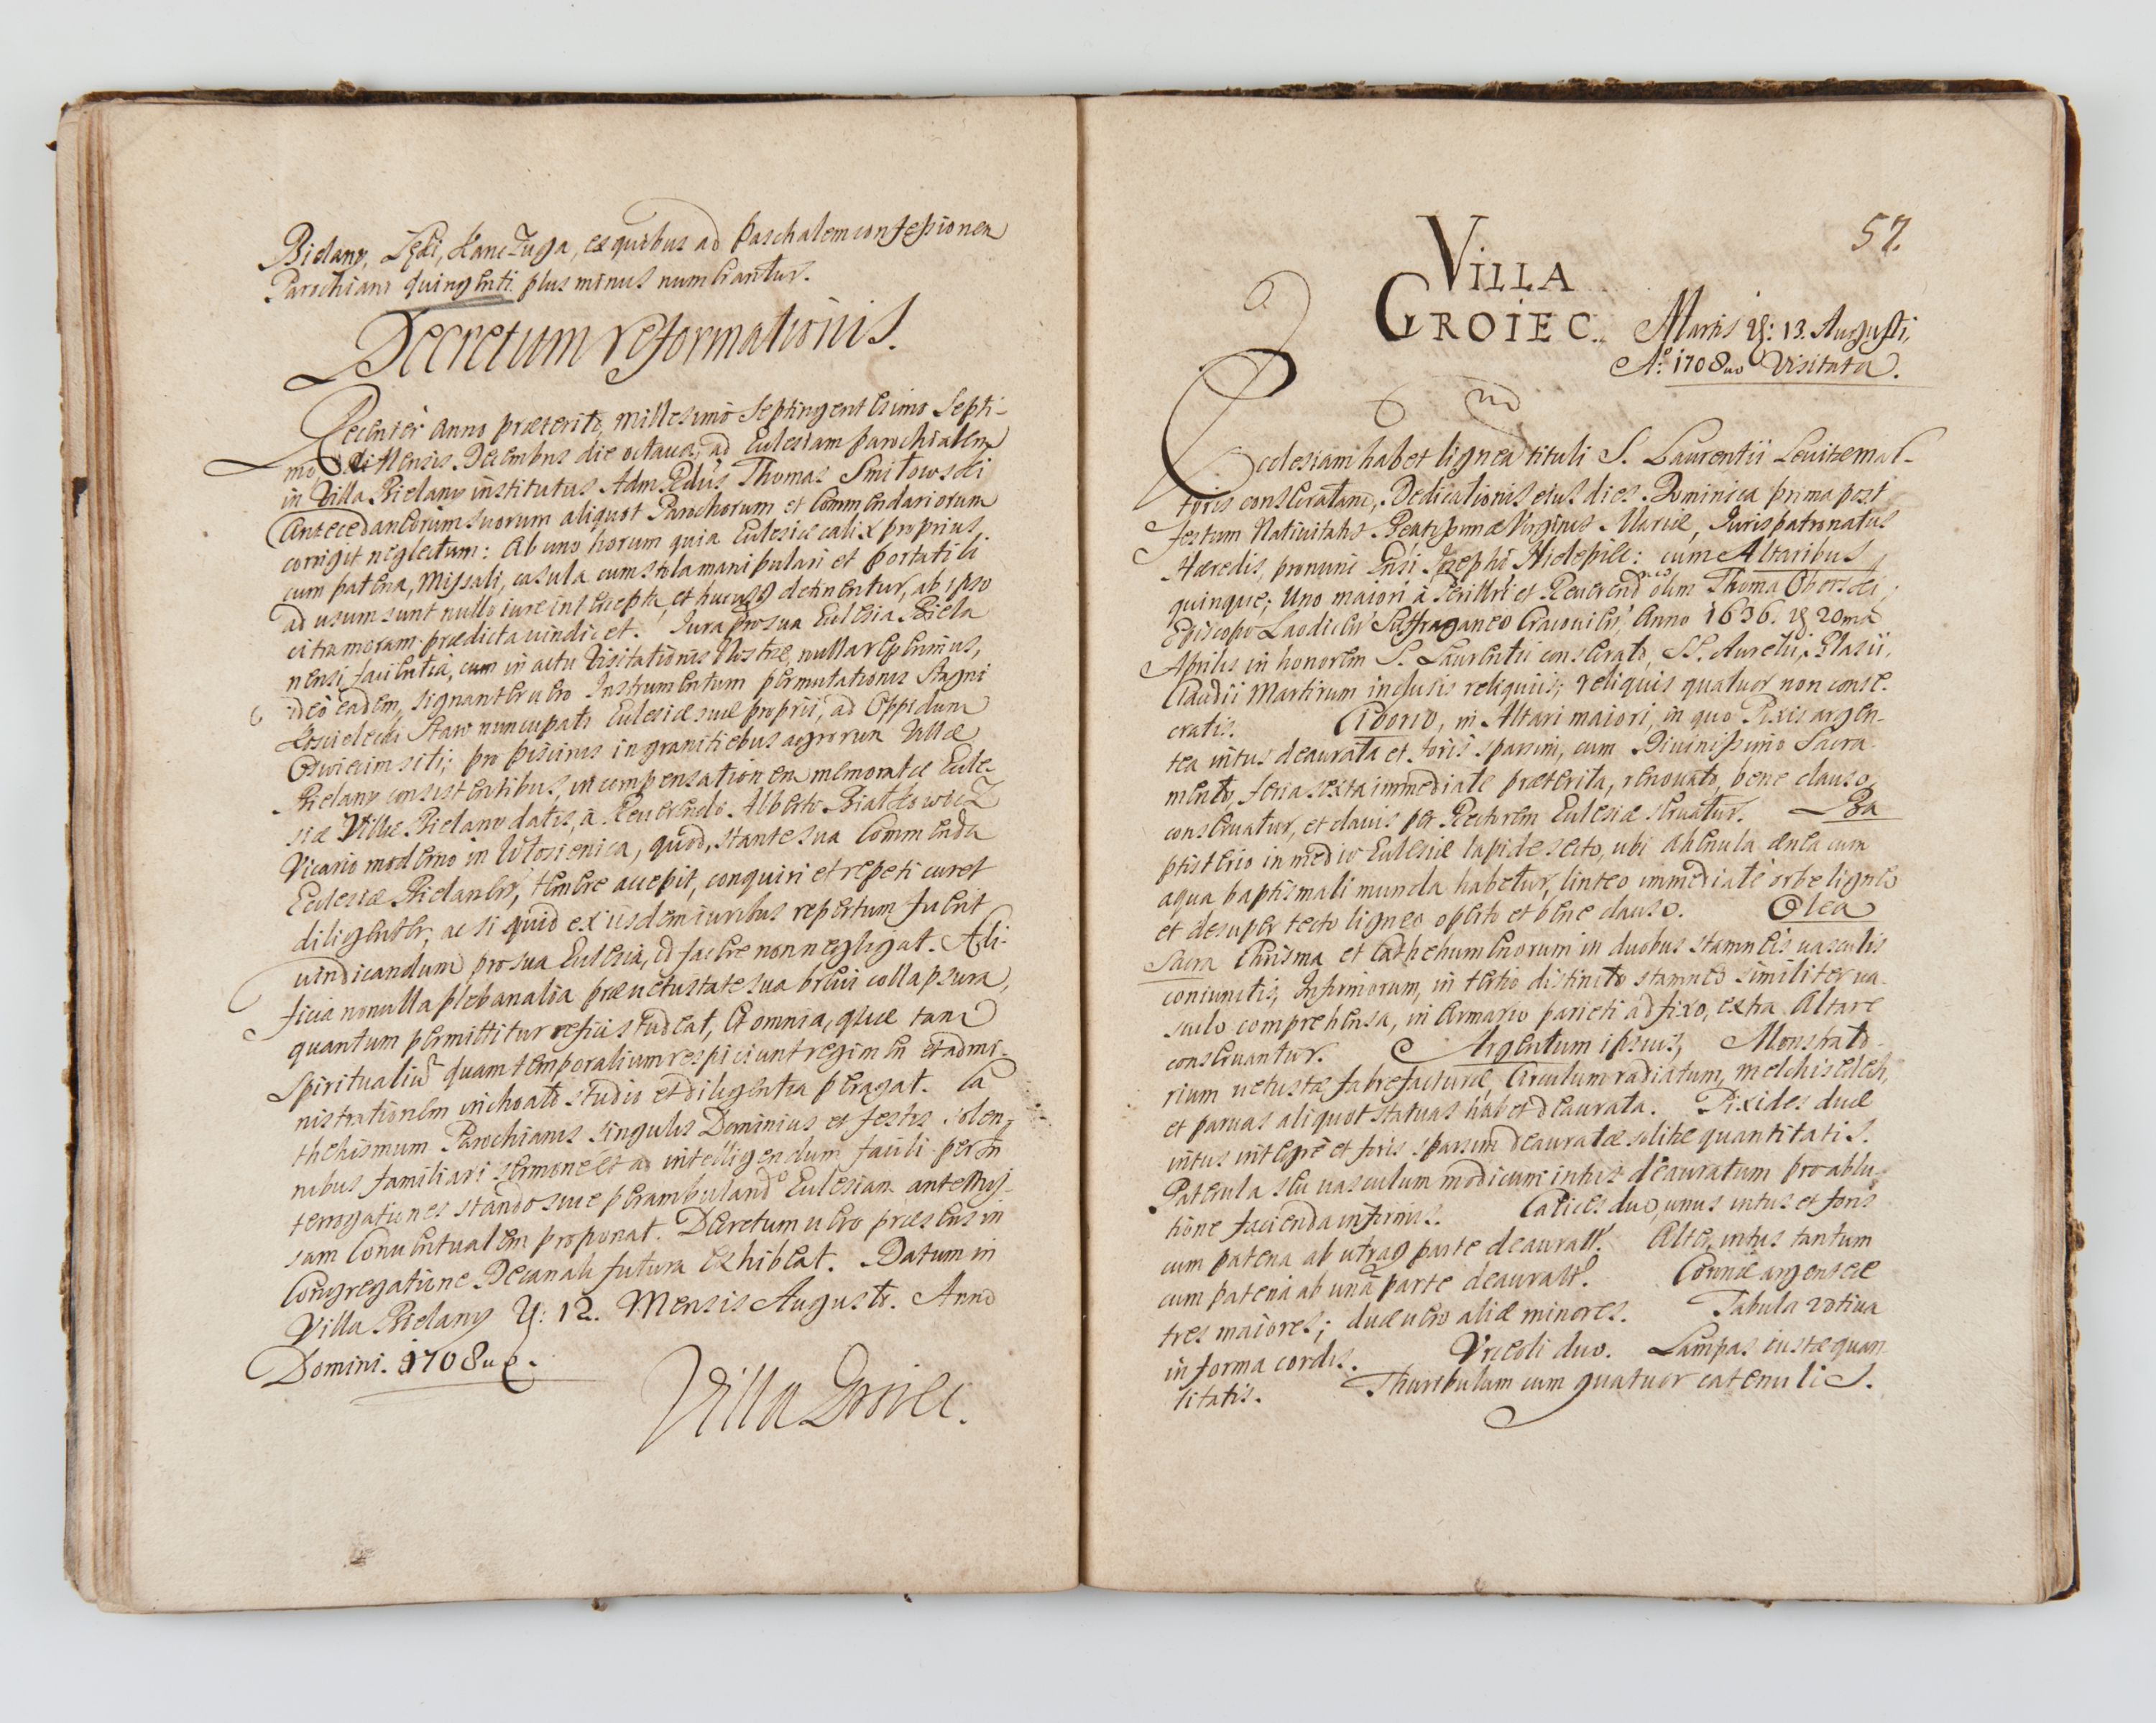 Bielany, Lęki, Kanczuga, ex quibus ad Paschalem confessionem
Parochiani quingenti plus minus numerantur.
Decretum reformationis.
Recenter Anno præterito millesimo Septingentesimo Septi-
mo, Mensis Decembris die octava, ad Ecclesiam parochialem
in Villa Bielany institutus Adm Rdus Thomas Smitowski
Antecedaneorum suorum aliquot Parochorum et Commendariorum
corrigit neglectum: Ab uno horum quia Ecclesiæ calix proprius
cum patena, Missali, casula cum stola manipulari et portatili
ad usum sunt nullo iure intercepta, et hucusq detinentur, ab ipso
citra moram prædicta vindicet. Jura pro sua Ecclesia Biela
nensi facientia, cum in actu Visitationis Nostræ, nulla reperimus,
ideo eadem, signanter vero Instrumentum permutationis Stagni
Koscielecki Staw nuncupati Ecclesiæ suæ proprii, ad Oppidum
Oswiecim siti; pro piscinis in granitiebus agrorum Villæ
Bielany consistentibus, in compensationem memoratæ Eccle-
siæ Villæ Bielany datis, a Reverendo Alberto Białkowicz
Vicario moderno in Witosienica, quod, stante sua Commenda
Ecclesiæ Bielanen, temere accepit, conquiri et repeti curet
diligenter, ac si quid ex iisdem iuribus repertum fuerit
vindicandum pro sua Ecclesia, id facere non negligat. Ædi-
ficia nonulla plebanalia præ vetustate sua brevi collapsura,
quantum permittitur refici studeat, Et omnia, quæ tam
Spiritualiũ quam temporalium respiciunt regimen et admi-
nistrationem inchoato studio et diligentia peragat. Ca
thehismum Parochianis singulis Dominicis et festis solen-
nibus familiari sermone et ad intelligendum facili per in
terrogationes stando sive perambulando Ecclesiam ante Mis-
sam Conventualem proponat. Decretum vero præsens in
Congregatione Decanali futura exhibeat. Datum in
Villa Bielany D: 12. Mensis Augusti. Anno
Domini. 1708uo.
Villa Groiec.
57.
VILLA
GROIEC. Martis D: 13. Augusti,
Ao: 1708uo Visitata.
Ecclesiam habet ligneã tituli S. Laurentii Levitæ mar-
tyris consecratam, Dedicationis eius dies Dominica prima post
festum Nativitatis Beatissimæ Virginis Mariæ, Juris patronatus
Hæredis, pronunc Gnsi Josephi Nielepiec: cum Altaribus
quinque; Uno maiori à Perillri et Reverendmo olim Thoma Oberski,
Episcopo Laodicen Suffraganeo Cracovien, Anno 1636. D 20ma
Aprilis in honorem S. Laurentii consecrato, SS. Aurelii, Blasii,
Claudii Martirum inclusis reliquiis; reliquis quatuor non conse-
cratis. Ciborio, in Altari maiori, in quo Pixis argen-
tea intus deaurata et foris sparsim, cum Divinissimo Sacra-
mento, feria sexta immediate præterita, renovato, bene clauso
conservatur, et clavis per Rectorem Ecclesiæ servatur. Ba
ptisterio in medio Ecclesiæ lapide secto, ubi Ahenula ænea cum
aqua baptismali munda habetur, linteo immediate orbe ligneo
et desuper tecto ligneo operto et bene clauso. Olea
Sacra Chrisma et Cathehumenorum in duobus stamneis vasculis
coniunctis, Infirmorum, in tertio distincto stamneo similiter va-
sculo comprehensa, in Armario parieti adfixo, extra Altare
conservantur. Argentum ipsius, Monstrato-
rium vetustæ fabrefacturæ, Circulum radiatum, melchisedech,
et parvas aliquot statuas habet deaurata. Pixides duæ
intus integre et foris sparsim deauratæ solitæ quantitatis.
Paterula seu vasculum modicum intus deauratum pro ablu-
tione facienda infirmis. Calices duo, unus intus et foris
cum patena ab utraq parte deaurat. Alter, intus tantum
cum patena ab unã parte deaurats. Coronæ argenteæ
tres maiores; duæ vero aliæ minores. Tabula votiva
in forma cordis. Urceoli duo. Lampas iustæ quan
titatis. Thuribulum cum quatuor catenulis.